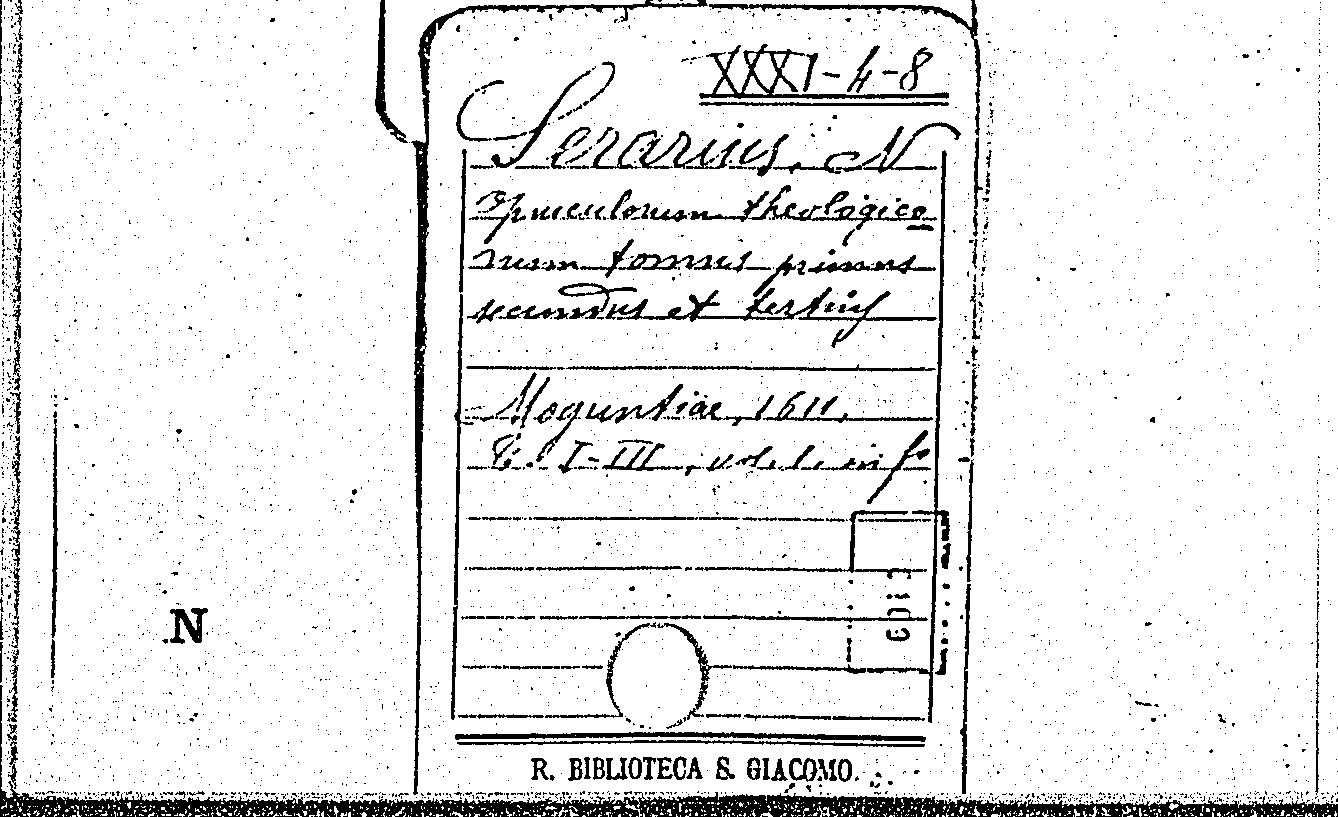 XXXI-4-8
Serarius, N
Opusculorum theologico
rum tomus primus
secundus et tertius
Moguntiae, 1611.
T. I-III, vol. 1. in f°
N
R. BIBLIOTECA S. GIACOMO.